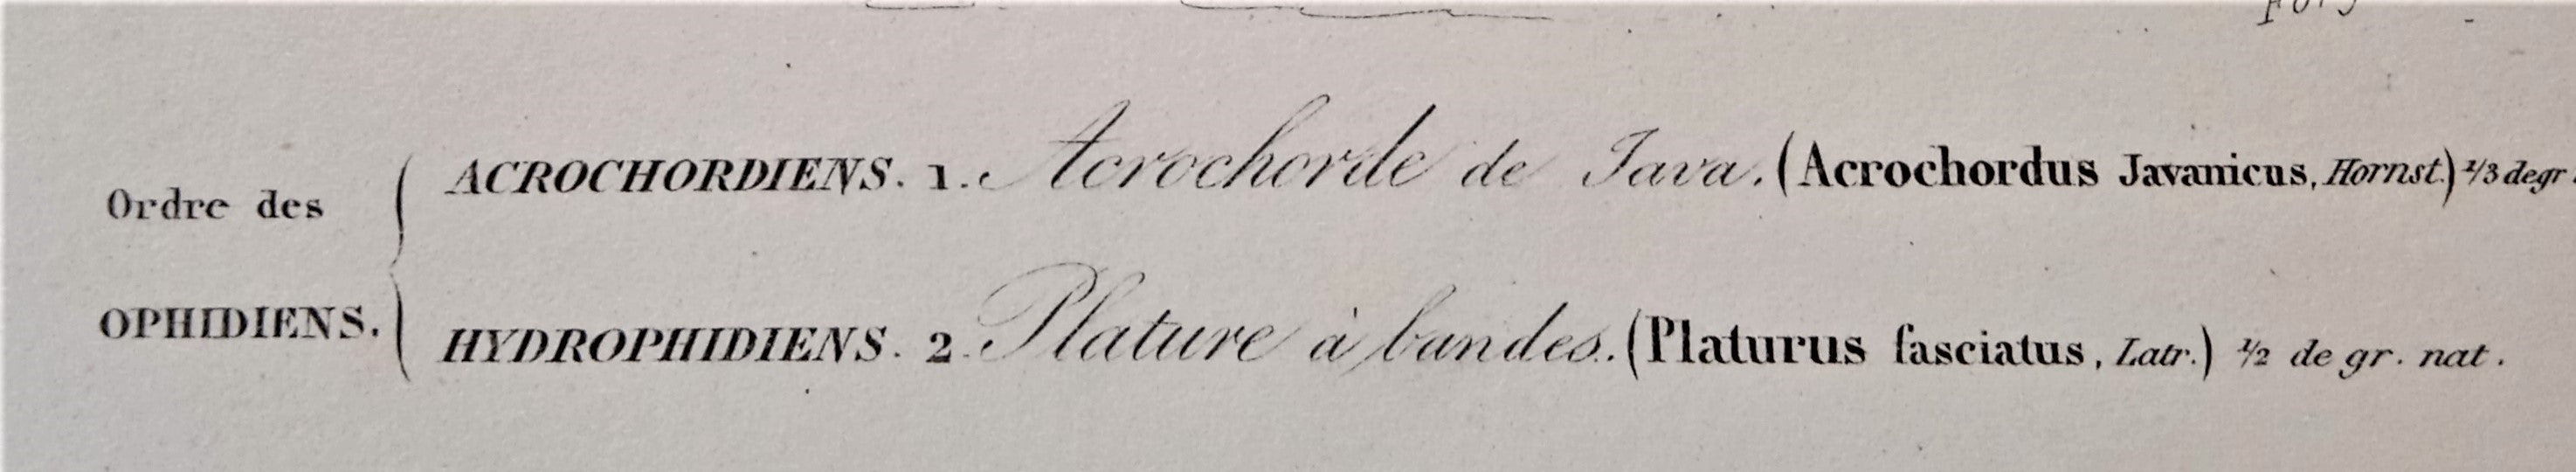 ACROCHORDIENS. 1. Acrochorde de Java. (Acrochordus Javanicus, Hornst.) 1/3 de gr.
Ordre des
OPHIDIENS.
HYDROPHIDIENS. 2. Plature à bandes. (Platurus fasciatus, Latr.) 1/2 de gr. nat.